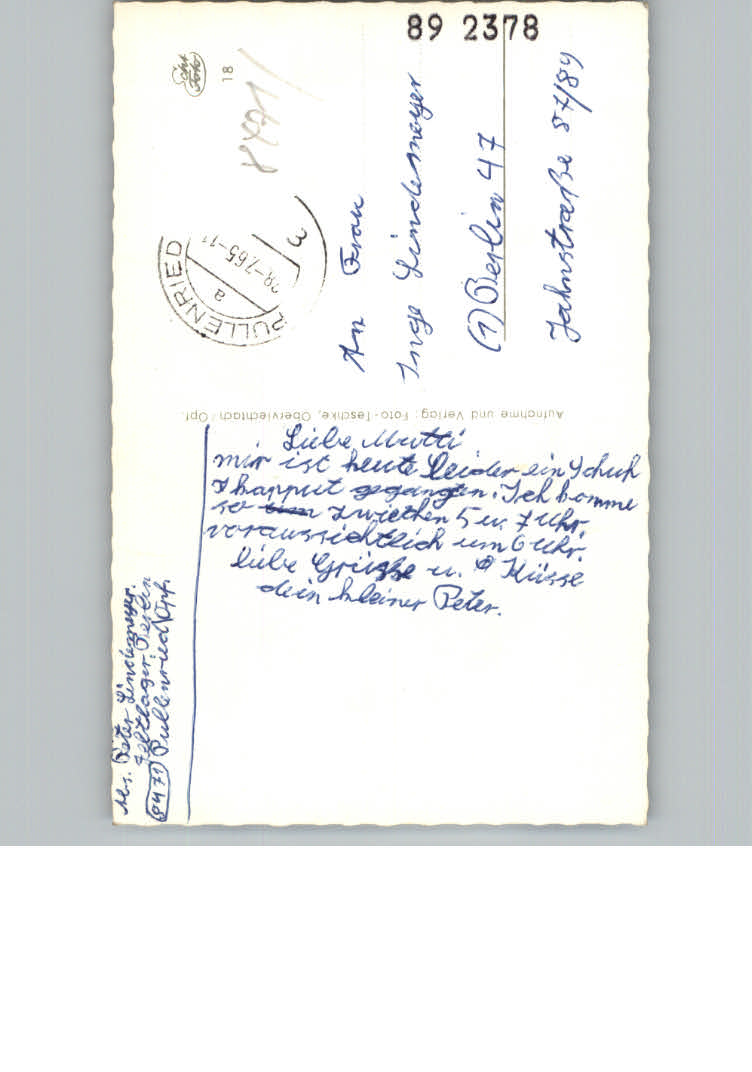 89 2378
Echt Foto
18
8471
PULLENRIED
a
28.-7.65-11
An Frau
Inge Lindemeyer
(1) Berlin 47
Jahnstraße 87/89
Aufnahme und Verlag: Foto-Teschke, Oberviechtach/Opf.
Liebe Mutti
mir ist heute leider ein Schuh
kapput gegangen. Ich komme
so zwischen 5 u. 7 Uhr,
voraussichtlich um 6 Uhr.
liebe Grüße u. Küsse
dein kleiner Peter.
Abs. Peter Lindemeyer.
Zeltlager Berlin
(8471) Pullenried/Opf.